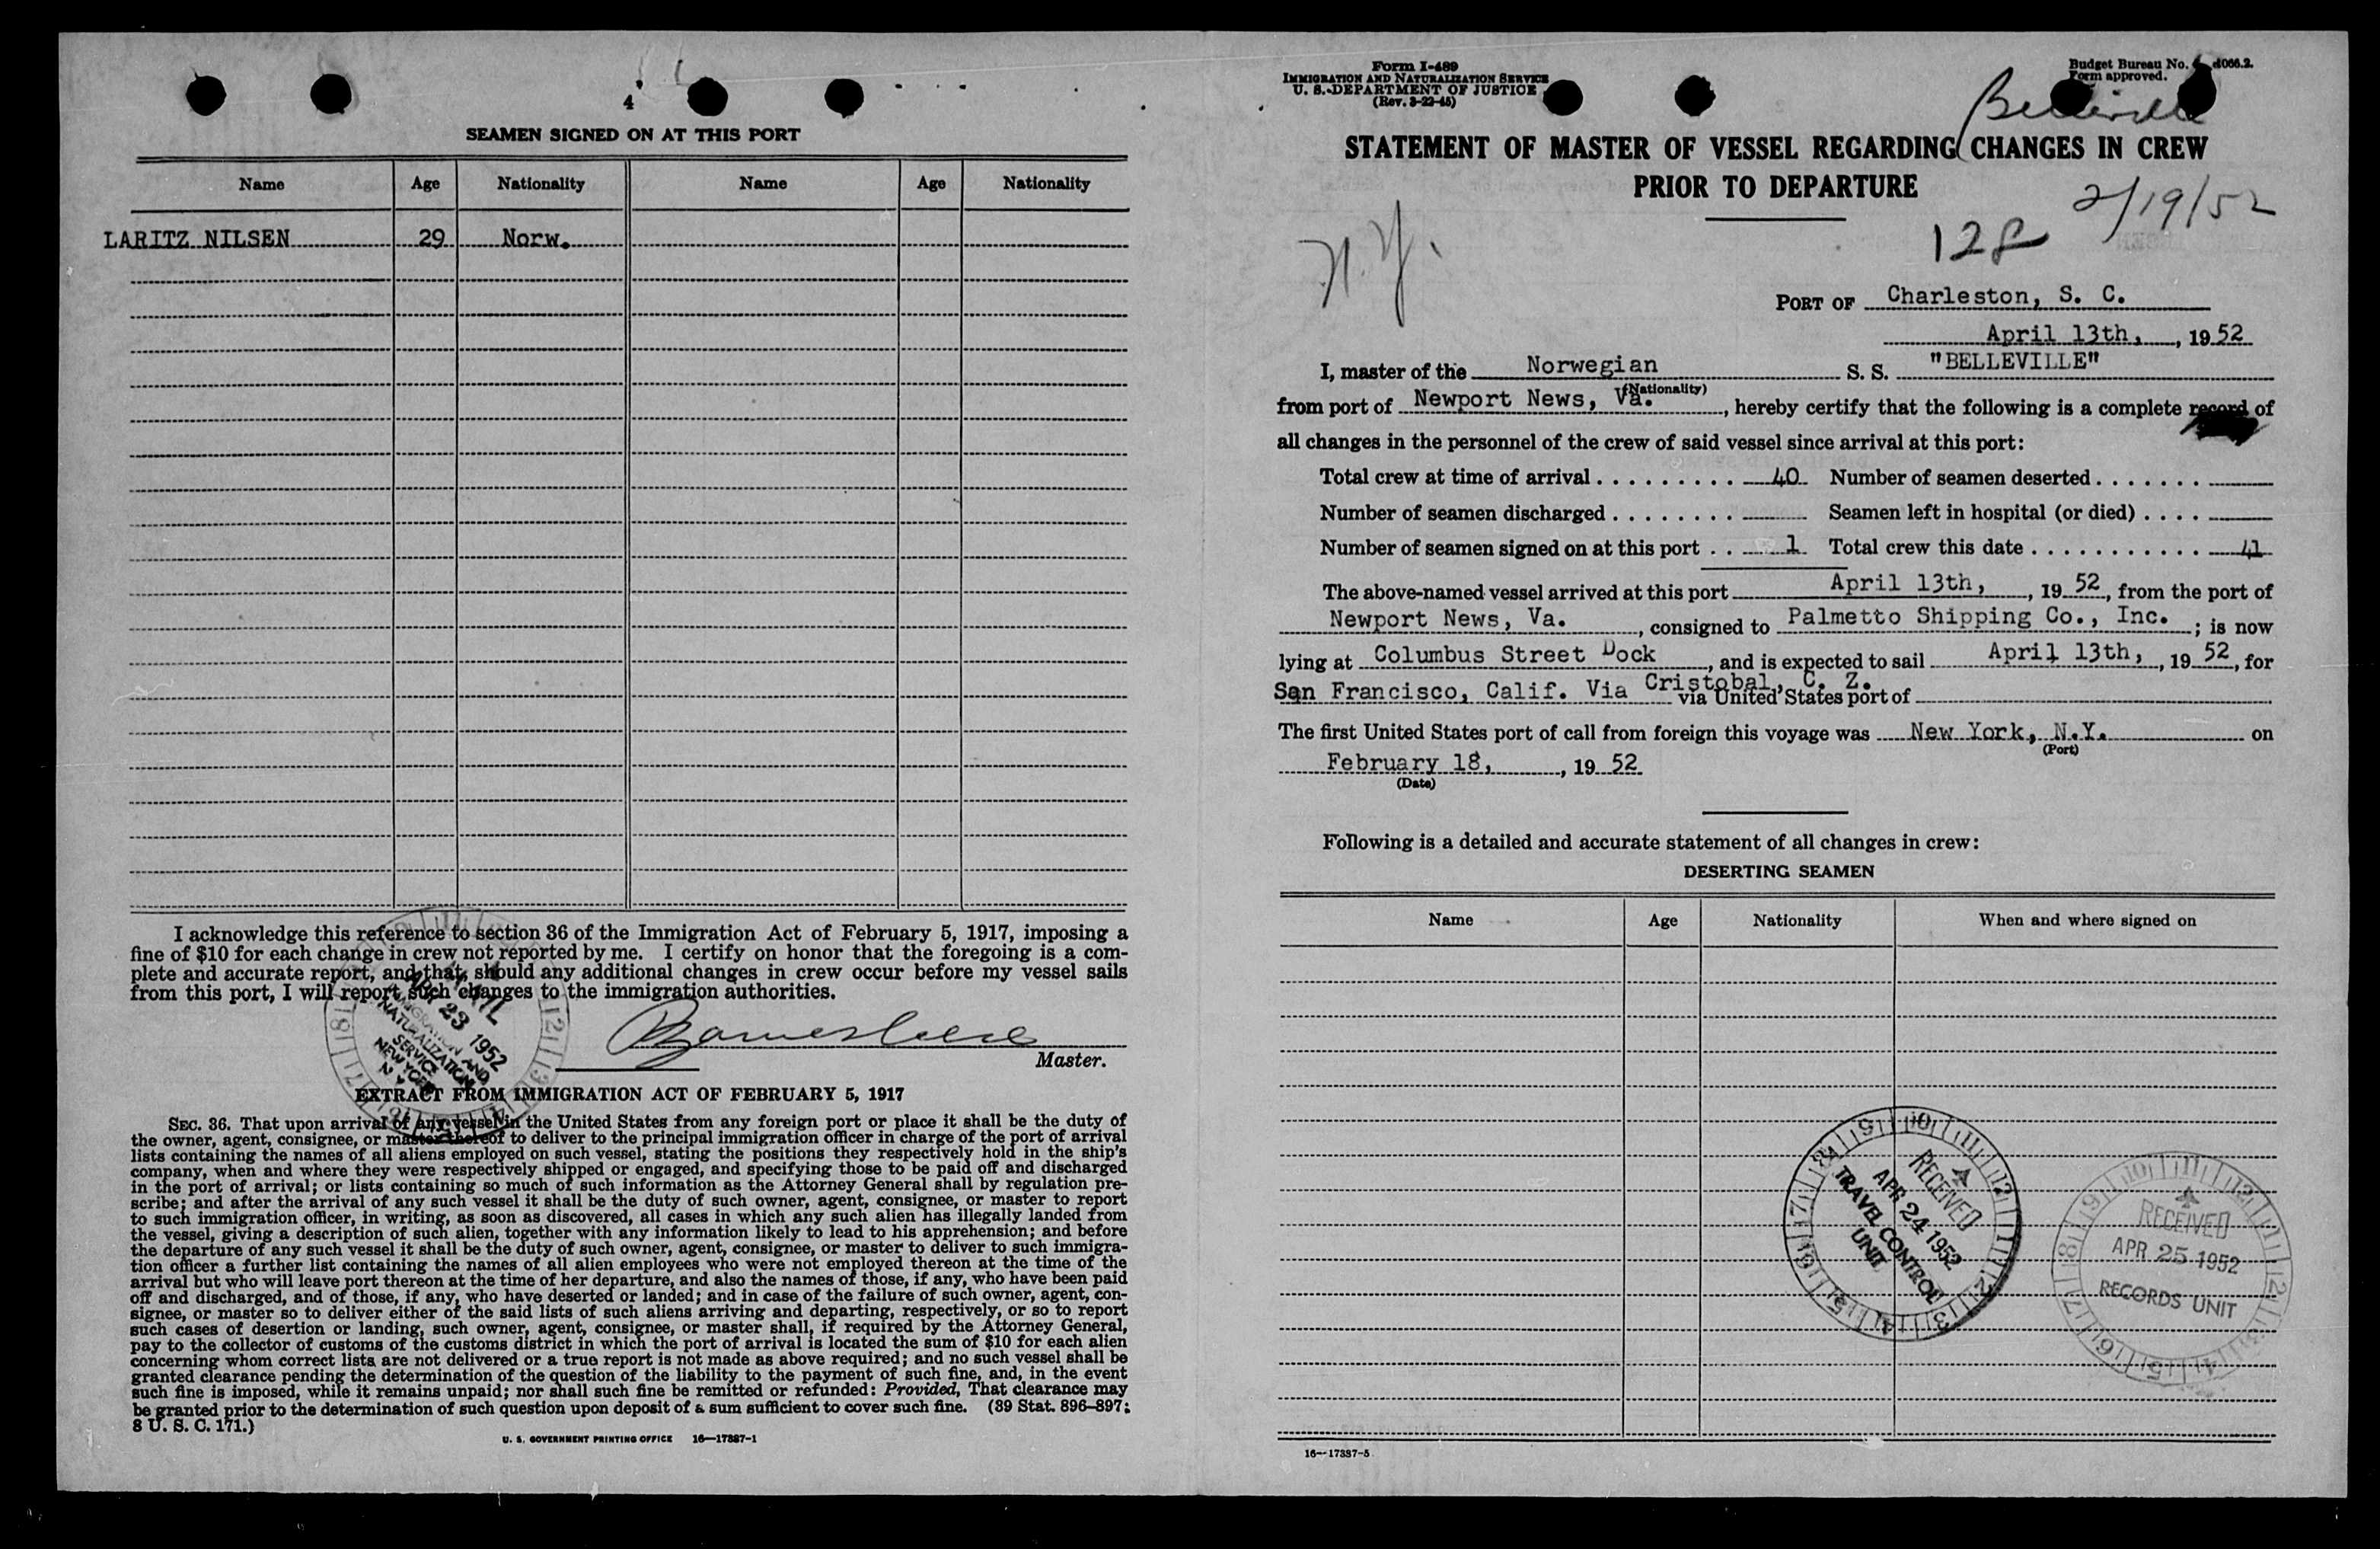 4
SEAMEN SIGNED ON AT THIS PORT
Name Age Nationality Name Age Nationality
LARITZ NILSEN 29 Norw.
I acknowledge this reference to section 36 of the Immigration Act of February 5, 1917, imposing a
fine of $10 for each change in crew not reported by me. I certify on honor that the foregoing is a com-
plete and accurate report, and that, should any additional changes in crew occur before my vessel sails
from this port, I will report such changes to the immigration authorities.
23 1952
IMMIGRATION AND
NATURALIZATION
SERVICE
NEW YORK
N Y
Master.
EXTRACT FROM IMMIGRATION ACT OF FEBRUARY 5, 1917
SEC. 36. That upon arrival of any vessel in the United States from any foreign port or place it shall be the duty of
the owner, agent, consignee, or master thereof to deliver to the principal immigration officer in charge of the port of arrival
lists containing the names of all aliens employed on such vessel, stating the positions they respectively hold in the ship's
company, when and where they were respectively shipped or engaged, and specifying those to be paid off and discharged
in the port of arrival; or lists containing so much of such information as the Attorney General shall by regulation pre-
scribe; and after the arrival of any such vessel it shall be the duty of such owner, agent, consignee, or master to report
to such immigration officer, in writing, as soon as discovered, all cases in which any such alien has illegally landed from
the vessel, giving a description of such alien, together with any information likely to lead to his apprehension; and before
the departure of any such vessel it shall be the duty of such owner, agent, consignee, or master to deliver to such immigra-
tion officer a further list containing the names of all alien employees who were not employed thereon at the time of the
arrival but who will leave port thereon at the time of her departure, and also the names of those, if any, who have been paid
off and discharged, and of those, if any, who have deserted or landed; and in case of the failure of such owner, agent, con-
signee, or master so to deliver either of the said lists of such aliens arriving and departing, respectively, or so to report
such cases of desertion or landing, such owner, agent, consignee, or master shall, if required by the Attorney General,
pay to the collector of customs of the customs district in which the port of arrival is located the sum of $10 for each alien
concerning whom correct lists are not delivered or a true report is not made as above required; and no such vessel shall be
granted clearance pending the determination of the question of the liability to the payment of such fine, and, in the event
such fine is imposed, while it remains unpaid; nor shall such fine be remitted or refunded: Provided, That clearance may
be granted prior to the determination of such question upon deposit of a sum sufficient to cover such fine. (39 Stat. 896–897;
8 U. S. C. 171.)
U. S. GOVERNMENT PRINTING OFFICE 16—17387-1
Form I-489
IMMIGRATION AND NATURALIZATION SERVICE
U. S. DEPARTMENT OF JUSTICE
(Rev. 3-22-45)
Budget Bureau No. 066.2.
Form approved.
Belleville
STATEMENT OF MASTER OF VESSEL REGARDING CHANGES IN CREW
PRIOR TO DEPARTURE
2/19/52
N.Y.
128
PORT OF Charleston, S. C.
April 13th, , 19 52
I, master of the Norwegian S. S. "BELLEVILLE"
(Nationality)
from port of Newport News, Va. , hereby certify that the following is a complete record of
all changes in the personnel of the crew of said vessel since arrival at this port:
Total crew at time of arrival . . . . . . . . . 40 Number of seamen deserted . . . . . . .
Number of seamen discharged . . . . . . . . Seamen left in hospital (or died) . . . .
Number of seamen signed on at this port . . 1 Total crew this date . . . . . . . . . . . . 41
The above-named vessel arrived at this port April 13th, , 19 52, from the port of
Newport News, Va. , consigned to Palmetto Shipping Co., Inc. ; is now
lying at Columbus Street Dock , and is expected to sail April 13th, , 19 52, for
San Francisco, Calif. Via Cristobal, C. Z. via United States port of
The first United States port of call from foreign this voyage was New York, N.Y. on
(Port)
February 18, , 19 52
(Date)
Following is a detailed and accurate statement of all changes in crew:
DESERTING SEAMEN
Name Age Nationality When and where signed on
RECEIVED
APR 24 1952
TRAVEL CONTROL
UNIT
RECEIVED
APR 25 1952
RECORDS UNIT
16—17387-5